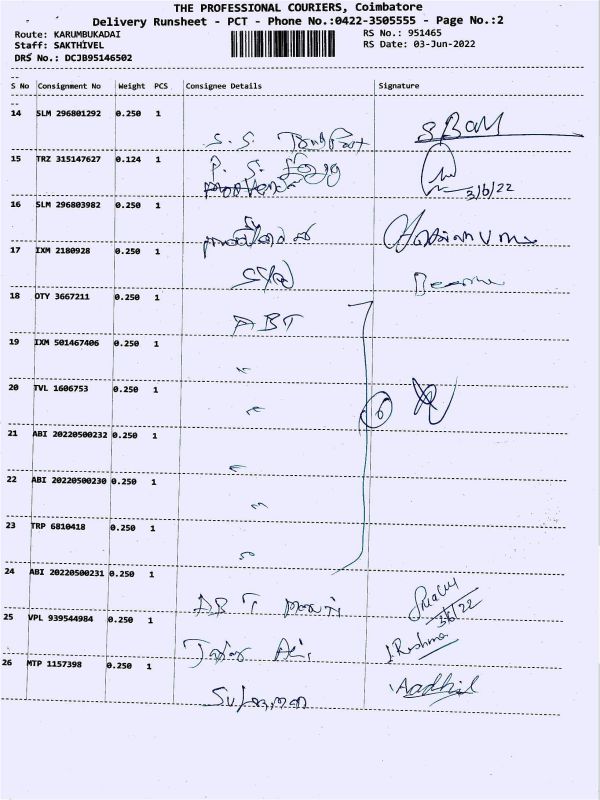 THE PROFESSIONAL COURIERS, Coimbatore
Delivery Runsheet - PCT - Phone No.:0422-3505555 - Page No.:2
Route: KARUMBUKADAI RS No.: 951465
Staff: SAKTHIVEL RS Date: 03-Jun-2022
DRS No.: DCJB95146502
S No Consignment No Weight PCS Consignee Details Signature
14 SLM 296801292 0.250 1
S. S.
15 TRZ 315147627 0.124 1
P. S. 3/6/22
16 SLM 296803982 0.250 1
17 IXM 2180928 0.250 1
18 OTY 3667211 0.250 1
ABT
19 IXM 501467406 0.250 1
20 TVL 1606753 0.250 1
6
21 ABI 20220500232 0.250 1
22 ABI 20220500230 0.250 1
23 TRP 6810418 0.250 1
24 ABI 20220500231 0.250 1
ABT 3/6/22
25 VPL 939544984 0.250 1
J. Reshma
26 MTP 1157398 0.250 1
Aadhil